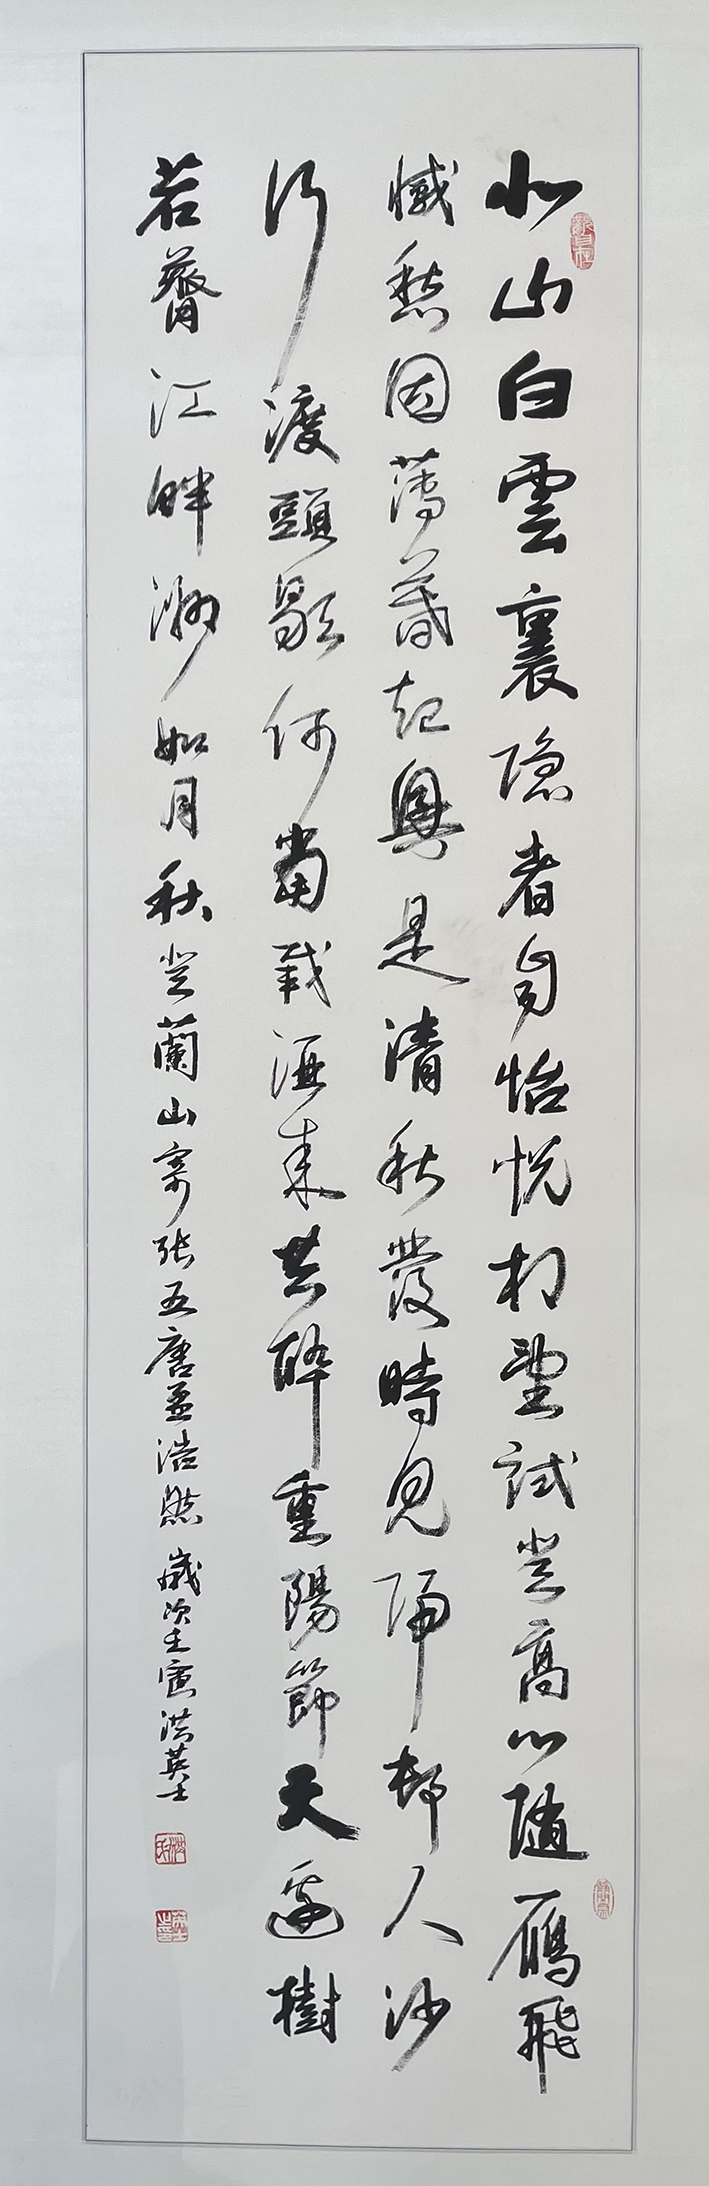 北山白雲裏隱者自怡悅相望試登高心隨鴈飛
滅愁因薄暮起興是清秋發時見歸邨人沙
行渡頭歇何當載酒來共醉重陽節天邊樹
若薺江畔洲如月秋登蘭山寄張五唐孟浩然歲次壬寅洪英士